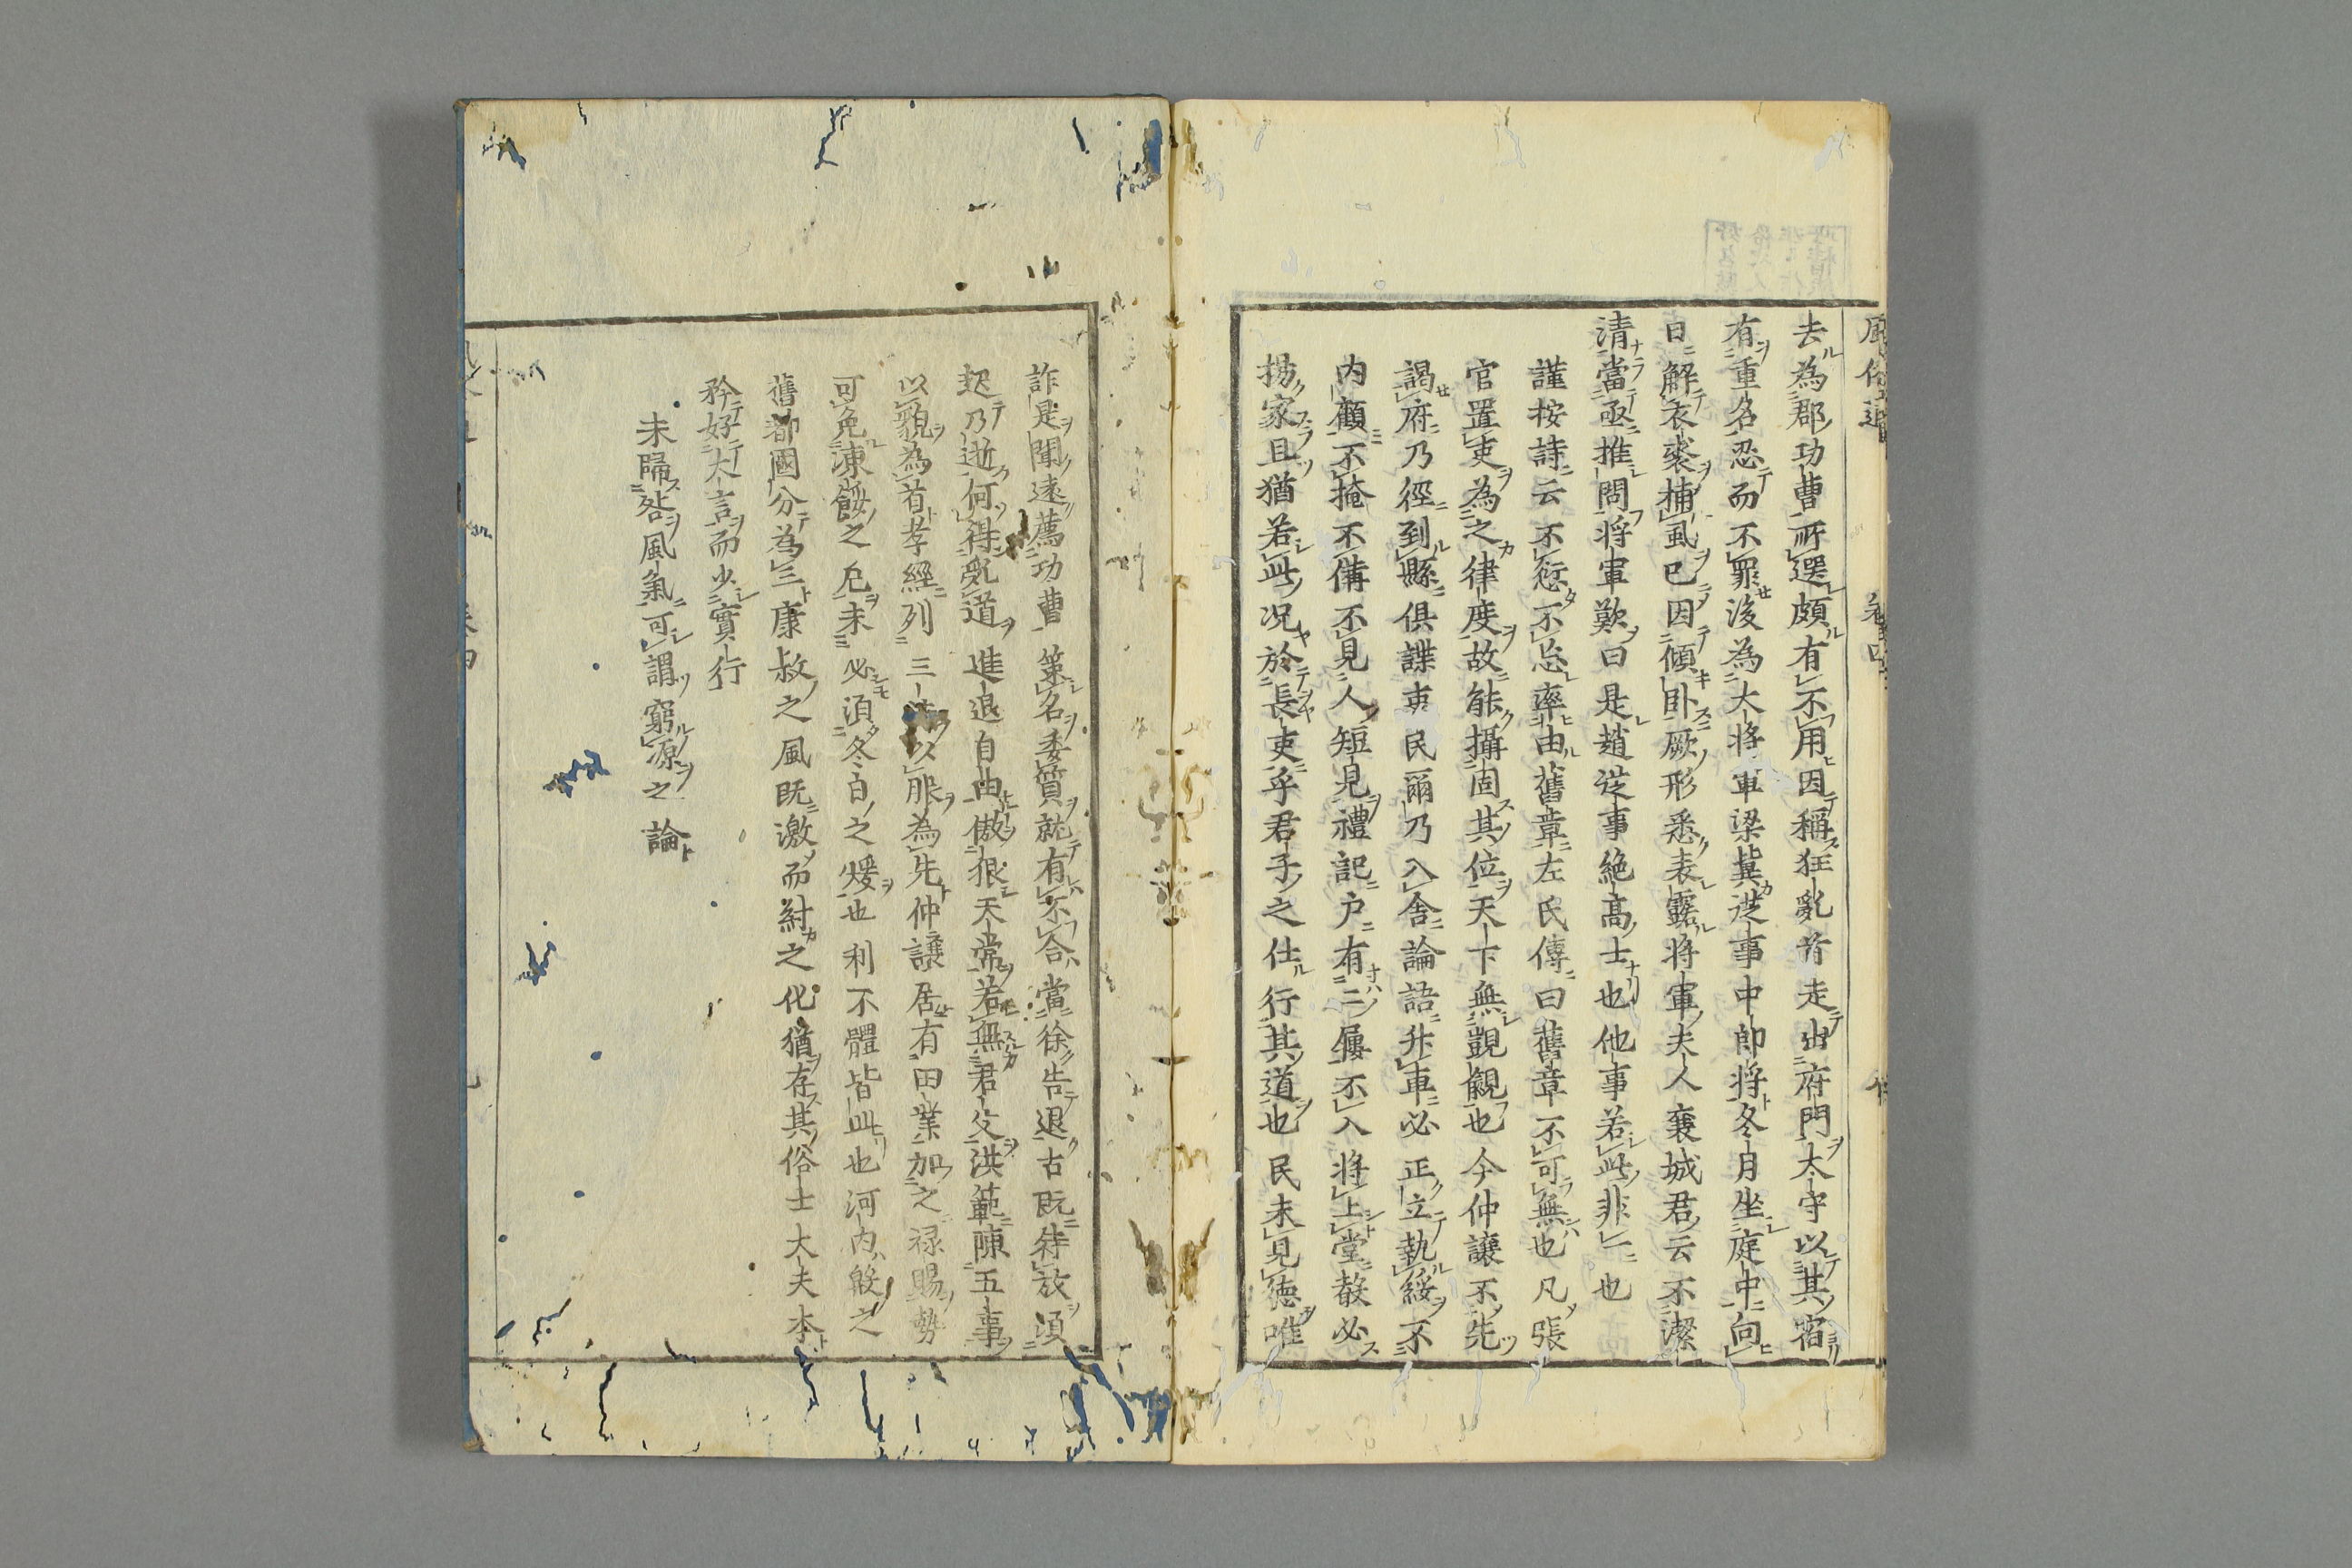 風俗通 卷四
去為郡功曹所選頗有不用因稱狂亂首走出府門太守以其宿
有重名忍而不罪後為大將軍梁冀從事中郎將冬月坐庭中向
日解衣裘捕虱已因傾臥厥形悉表露將軍夫人襄城君云不潔
清當亟推問將軍歎曰是趙從事絶高士也他事若此非一也
謹按詩云不愆不忘率由舊章左氏傳曰舊章不可無也凡張
官置吏為之律度故能攝固其位天下無覬覦也今仲讓不先
謁府乃徑到縣俱諜吏民爾乃入舍論語升車必正立執綏不
內顧不掩不備不見人短見禮記戶有二屨不入將上堂聲必
揚家且猶若此况於長吏乎君子之仕行其道也民未見德唯
詐是聞遠薦功曹策名委質就有不合當徐告退古既待放須
起乃逝何得亂道進退自由傲狠天常若無君父洪範陳五事
以貌為首孝經列三以服為先仲讓居有田業加之祿賜勢
可免凍餒之厄未必須冬日之煖也利不體皆此也河內殷之
舊都國分為三康叔之風既激而紂之化猶存其俗士大夫本
矜好大言而少實行
未歸咎風氣可謂窮源之論